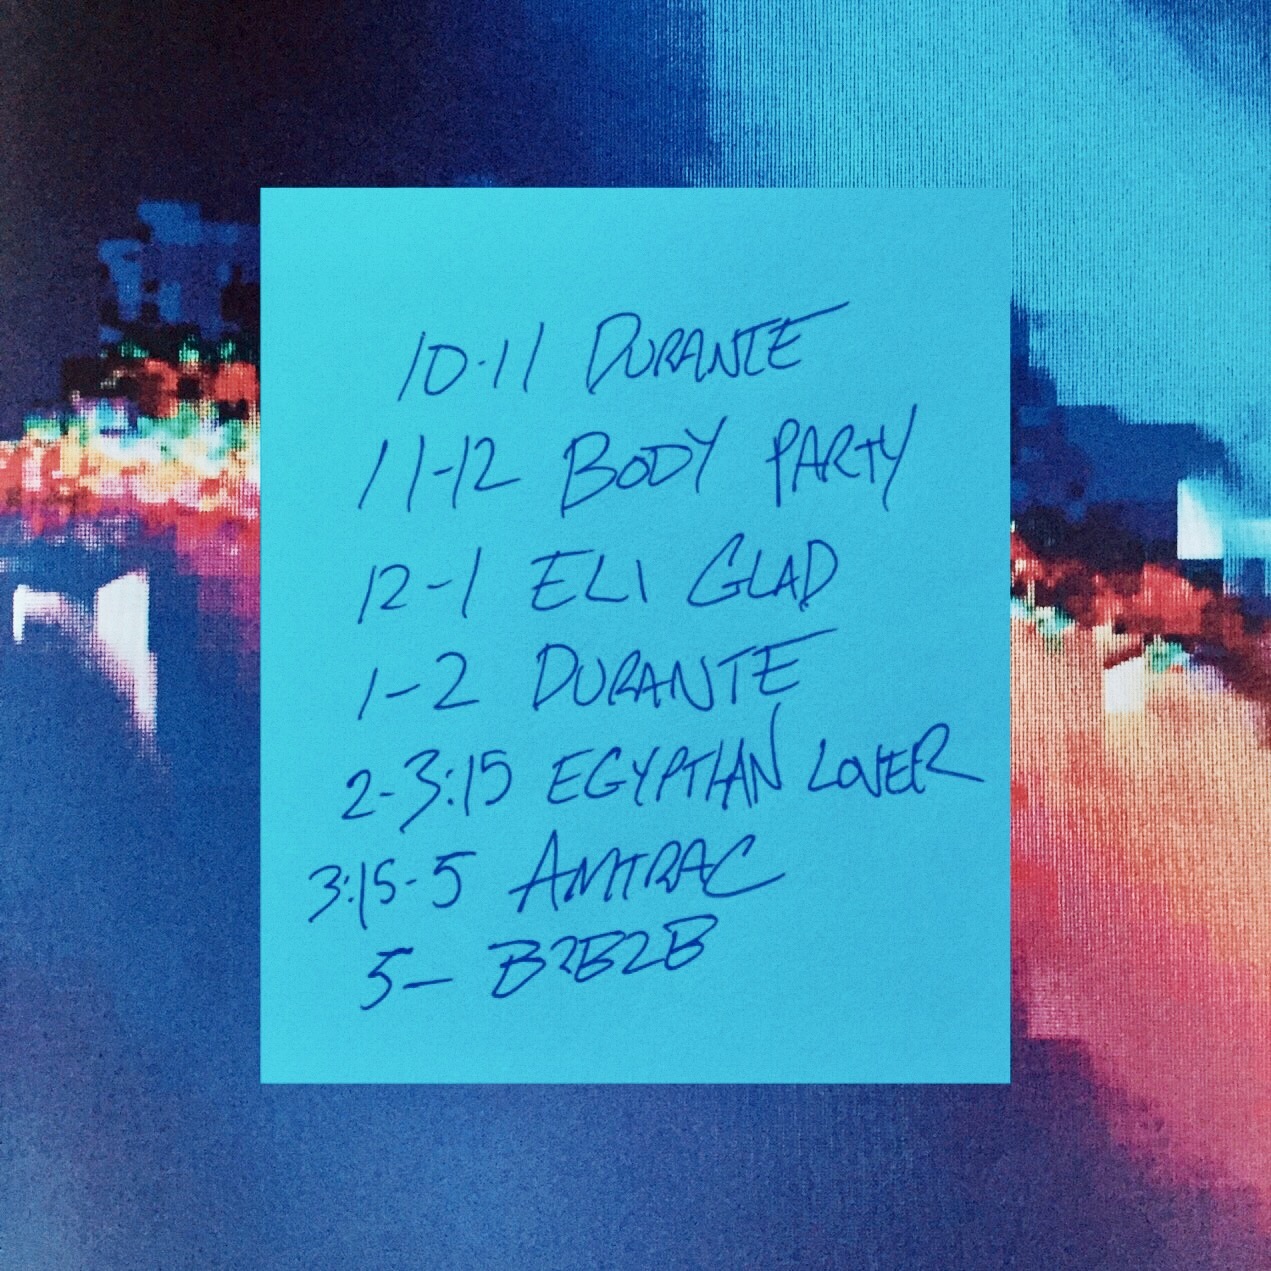 10-11 DURANTE
11-12 BODY PARTY
12-1 ELI GLAD
1-2 DURANTE
2-3:15 EGYPTIAN LOVER
3:15-5 AMTRAC
5- B2B2B